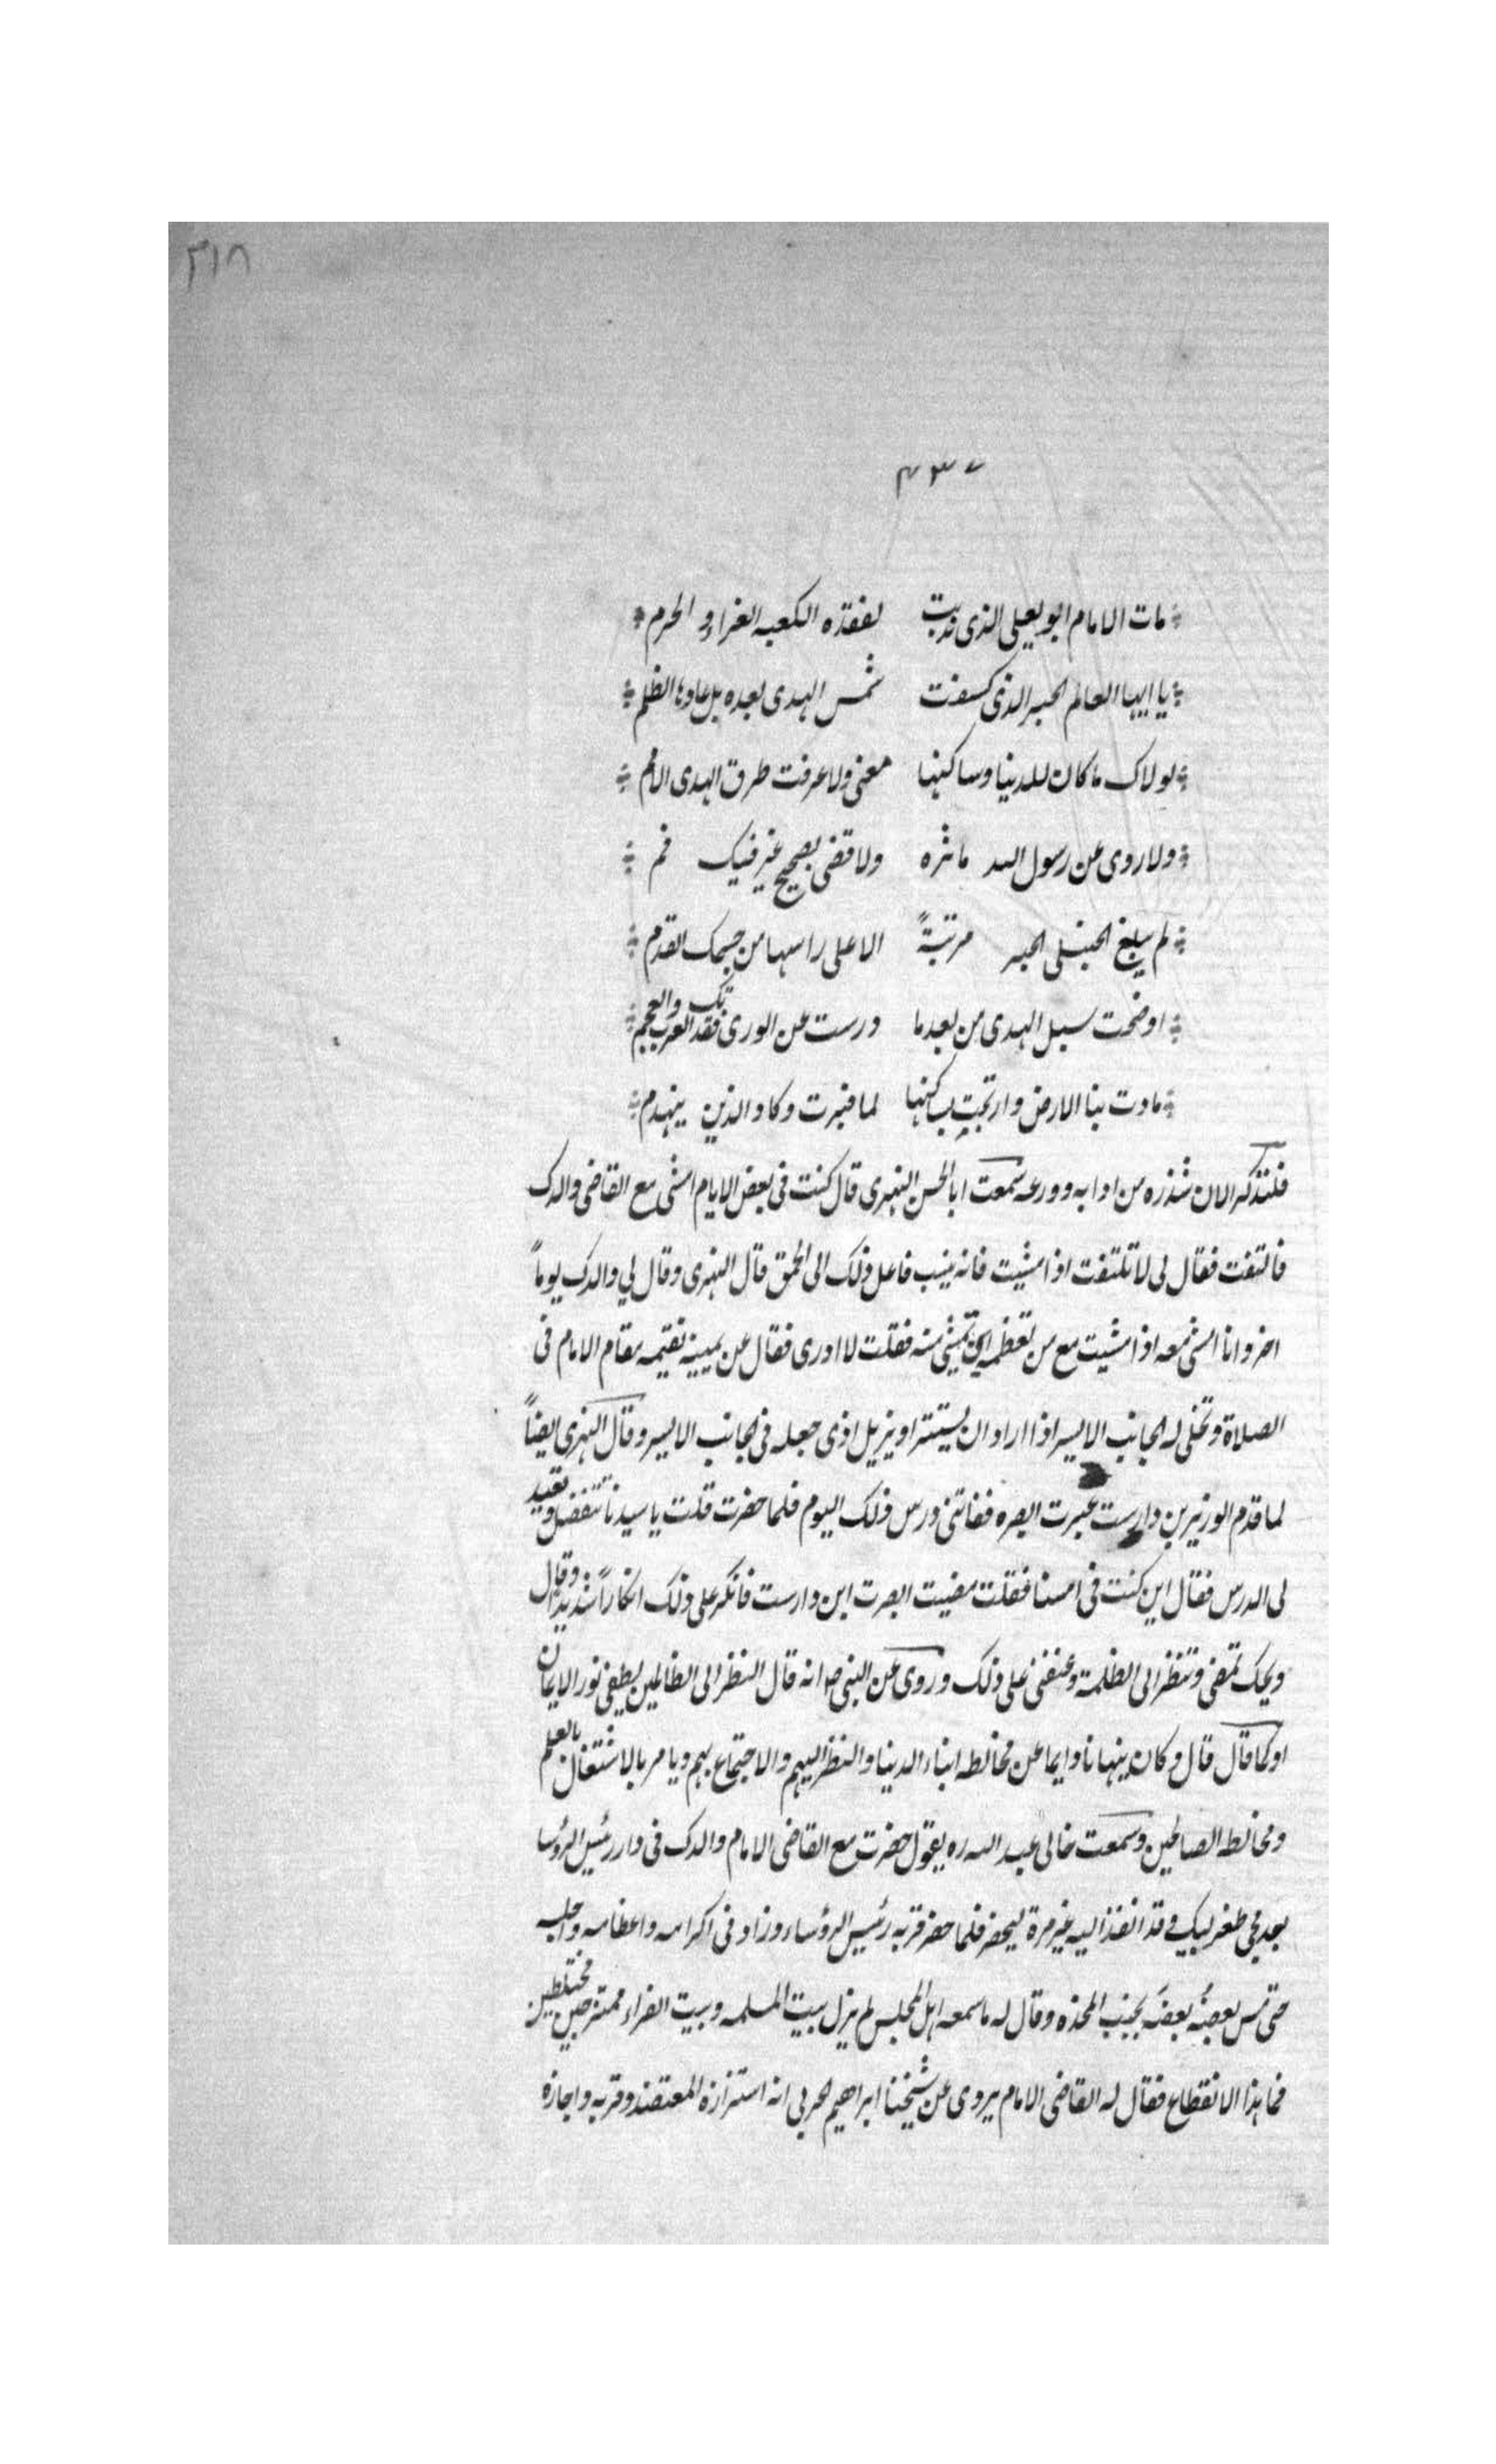 ٣١٨
٤٣٧
مات الامام ابو يعلى الذى ندبت لفقده الكعبه الغراء و الحرم
يا ايها العالم الحبر الذى كسفت شمس الهدى بعده بل عاودها الظلم
لولاك ما كان للدنيا وساكنها معنى ولا عرفت طرق الهدى الامم
ولا روى عن رسول الله ماثره ولا قضى بصحيح غير فيك فم
لم يبلغ الحنبلى الحبر مرتبةً الا على راسها من جسمك القدم
اوضحت سبل الهدى من بعد ما درست عن الورى فقد بك العرب والعجم
مادت بنا الارض وارتجت بساكنها لما قبرت وكاد الدين ينهدم
فلنذكر الان شذره من ادابه وورعه سمعت ابا الحسن النهرى قال كنت فى بعض الايام امشى مع القاضى والدك
فالتفت فقال لى لا تلتفت اذا مشيت فانه ينسب فاعل ذلك الى الحمق قال النهرى وقال لي والدك يوماً
اخر وانا امشى معه اذا مشيت مع من تعظمه اين تمشى منه فقلت لا ادرى فقال عن يمينه تقيمه مقام الامام فى
الصلاة وتخلى له الجانب الايسر اذا اراد ان يستنثر او يزيل اذى جعله فى الجانب الايسر وقال النهرى ايضاً
لما قدم الوزير بن دارست عبرت ابصره ففاتنى درس ذلك اليوم فلما حضرت قلت يا سيدنا تتفضل وتعيد
لى الدرس فقال اين كنت فى امسنا فقلت مضيت ابصرت ابن دارست فانكر على ذلك انكاراً شديداً وقال
ويحك تمضى وتنظر الى الظلمة وعنفنى على ذلك وروى عن النبى ص انه قال النظر الى الظالمين يطفى نور الايمان
او كما قال قال وكان ينهانا دايما عن مخالطه ابناء الدنيا والنظر اليهم والاجتماع بهم ويامر بالاشتغال بالعلم
ومخالطه الصالحين وسمعت خالى عبد الله ره يقول حضرت مع القاضى الامام والدك فى دار رئيس الرؤسا
بعد مجى طغرلبيك وقد انفذ اليه غير مرة ليحضر فلما حضر قربه رئيس الرؤساء وزاد فى اكرامه واعظامه واجلسه
حتى مس بعضهُ بعضَه بجنب المخده وقال له ما سمعه اهل المجلس لم يزل بيت المسلمه وبيت الفراء ممتزجين مختلطين
فما هذا الانقطاع فقال له القاضى الامام يروى عن شيخنا ابراهيم الحربى انه استزاره المعتضد وقربه واجازه